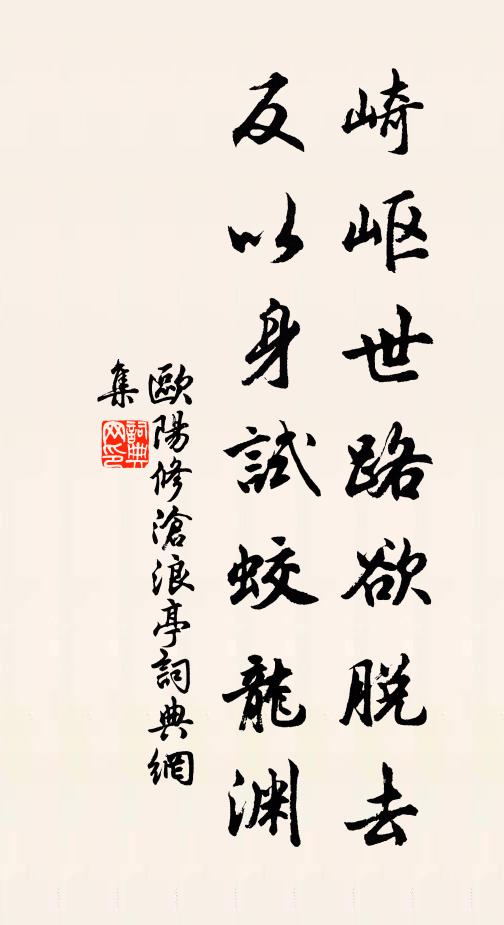 崎岖世路欲脱去
反以身試蛟龍渊
歐陽修滄浪亭詞典網
集
詞典网印